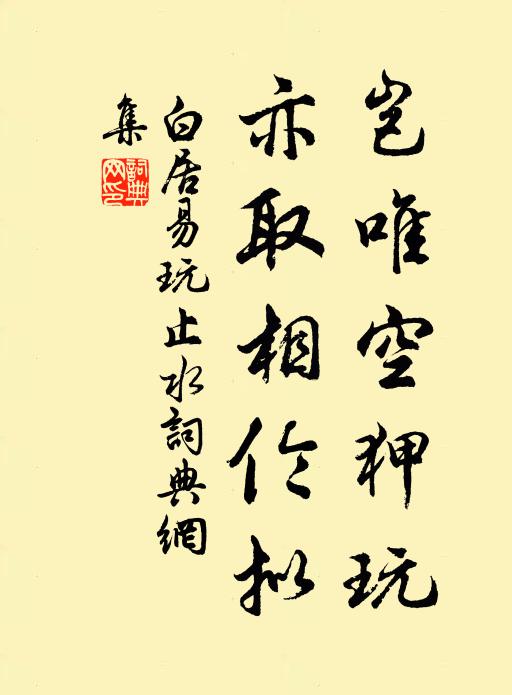 岂唯空狎玩
亦取相伦拟
白居易玩止水詞典網
集
詞典网印